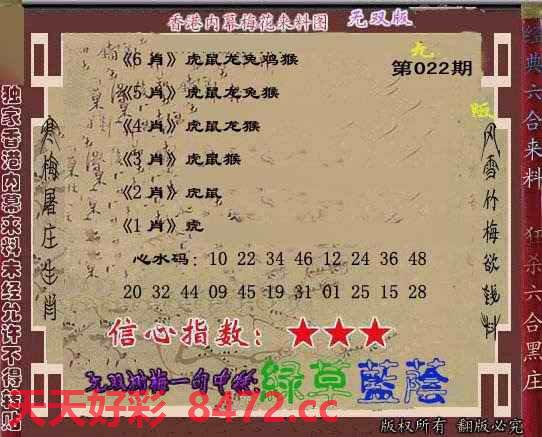 香港内幕梅花来料图 无双版
九
版
第022期
《6 肖》虎鼠龙兔鸡猴
《5 肖》虎鼠龙兔猴
《4 肖》虎鼠龙猴
《3 肖》虎鼠猴
《2 肖》虎鼠
《1 肖》虎
心水码：10 22 34 46 12 24 36 48
20 32 44 09 45 19 31 01 25 15 28
信心指数：★★★
无双测梅一句中特:绿草蓝荫
天天好彩 8472.cc
版权所有 翻版必究
独家香港内幕来料未经允许不得转贴
寒梅屠庄生肖
风雪竹梅欲钱料
经典六合来料 狂杀六合黑庄